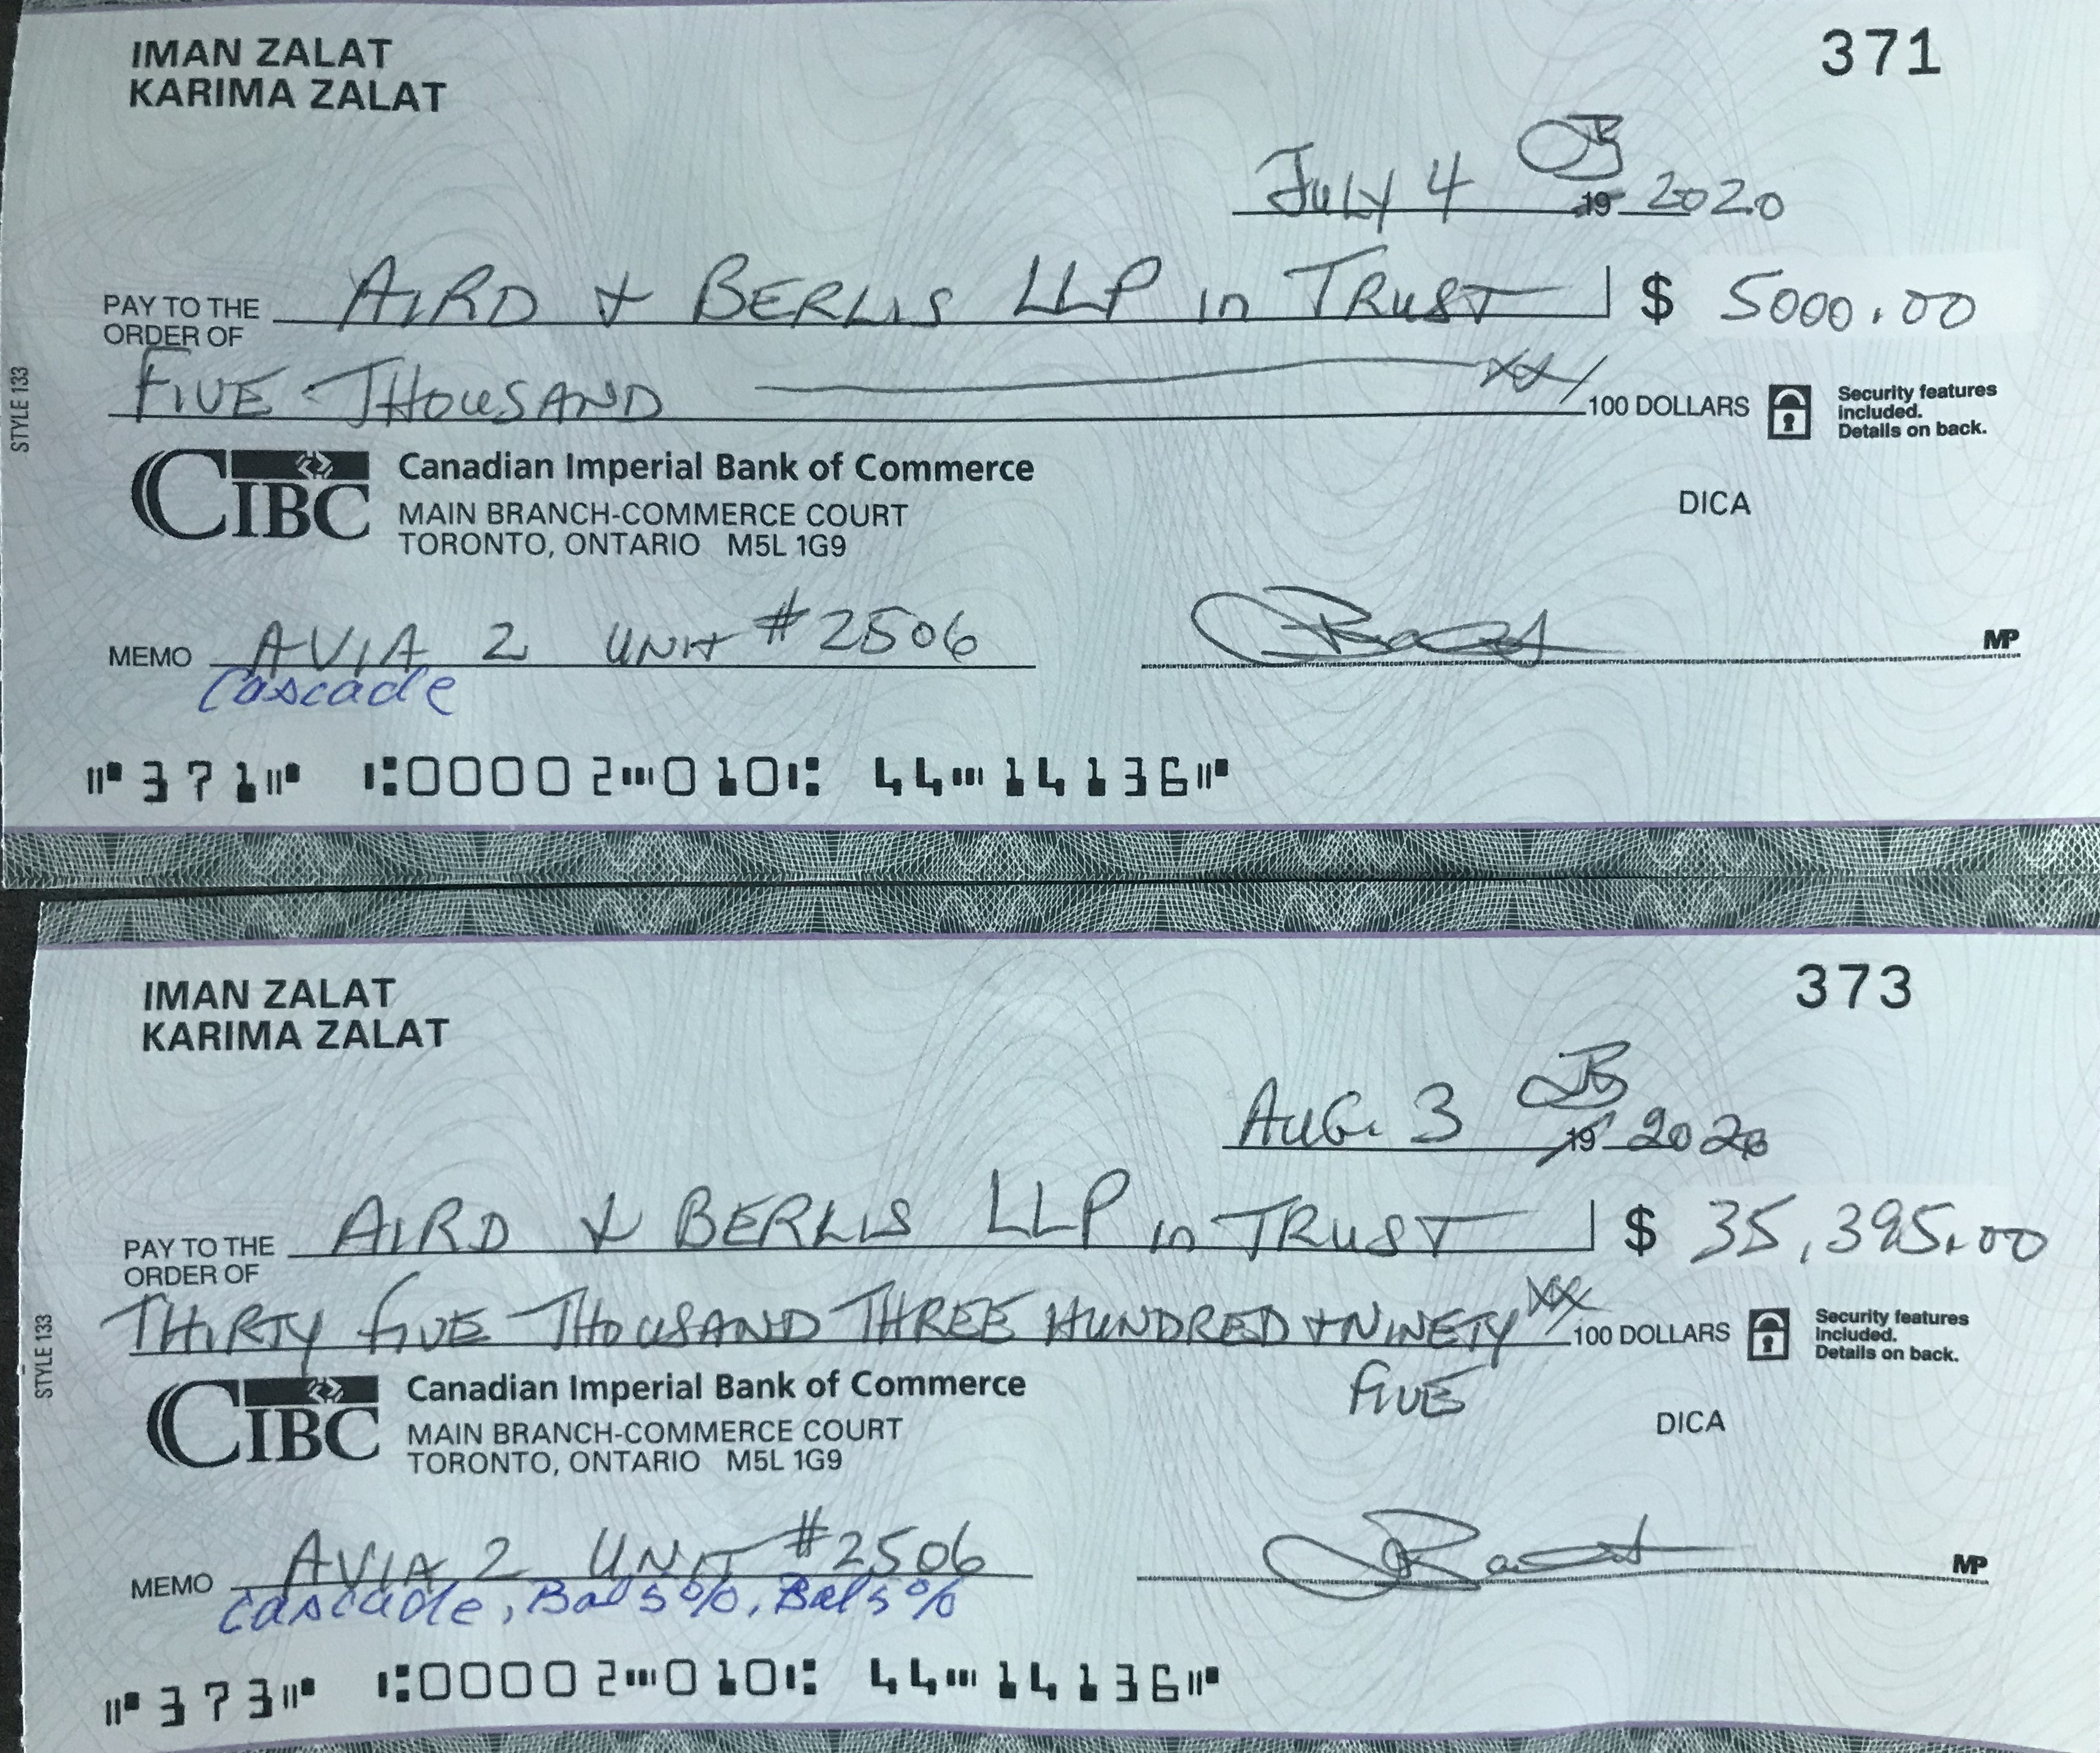 IMAN ZALAT
KARIMA ZALAT
371
July 4 19 2020
PAY TO THE ORDER OF AIRD & BERLIS LLP in TRUST $ 5000.00
FIVE THOUSAND XX/100 DOLLARS
Security features included. Details on back.
STYLE 133
CIBC Canadian Imperial Bank of Commerce
MAIN BRANCH-COMMERCE COURT
TORONTO, ONTARIO M5L 1G9
DICA
MEMO AVIA 2 UNIT #2506
MP
Cascade
⑈371⑈ ⑆00002⑉010⑆ 44⑉14136⑈
IMAN ZALAT
KARIMA ZALAT
373
AUG. 3 19 2020
PAY TO THE ORDER OF AIRD & BERLIS LLP in TRUST $ 35,395.00
THIRTY FIVE THOUSAND THREE HUNDRED + NINETY XX/100 DOLLARS
FIVE
Security features included. Details on back.
STYLE 133
CIBC Canadian Imperial Bank of Commerce
MAIN BRANCH-COMMERCE COURT
TORONTO, ONTARIO M5L 1G9
DICA
MEMO AVIA 2 UNIT #2506
MP
Cascade, Bal 5%, Bal 5%
⑈373⑈ ⑆00002⑉010⑆ 44⑉14136⑈